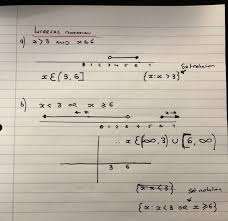 INTERVAL NOTATION
a) x > 3 AND x ≤ 6
0 1 2 3 4 5 6 7
Set notation
x ∈ (3, 6]
{x : x > 3}
b) x < 3 OR x ≥ 6
← x
x →
0 1 2 3 4 5 6 7
∴ x ∈ (∞, 3) ∪ [6, ∞)
3 6
{x : x < 3}
Set notation
{x : x < 3 OR x ≥ 6}